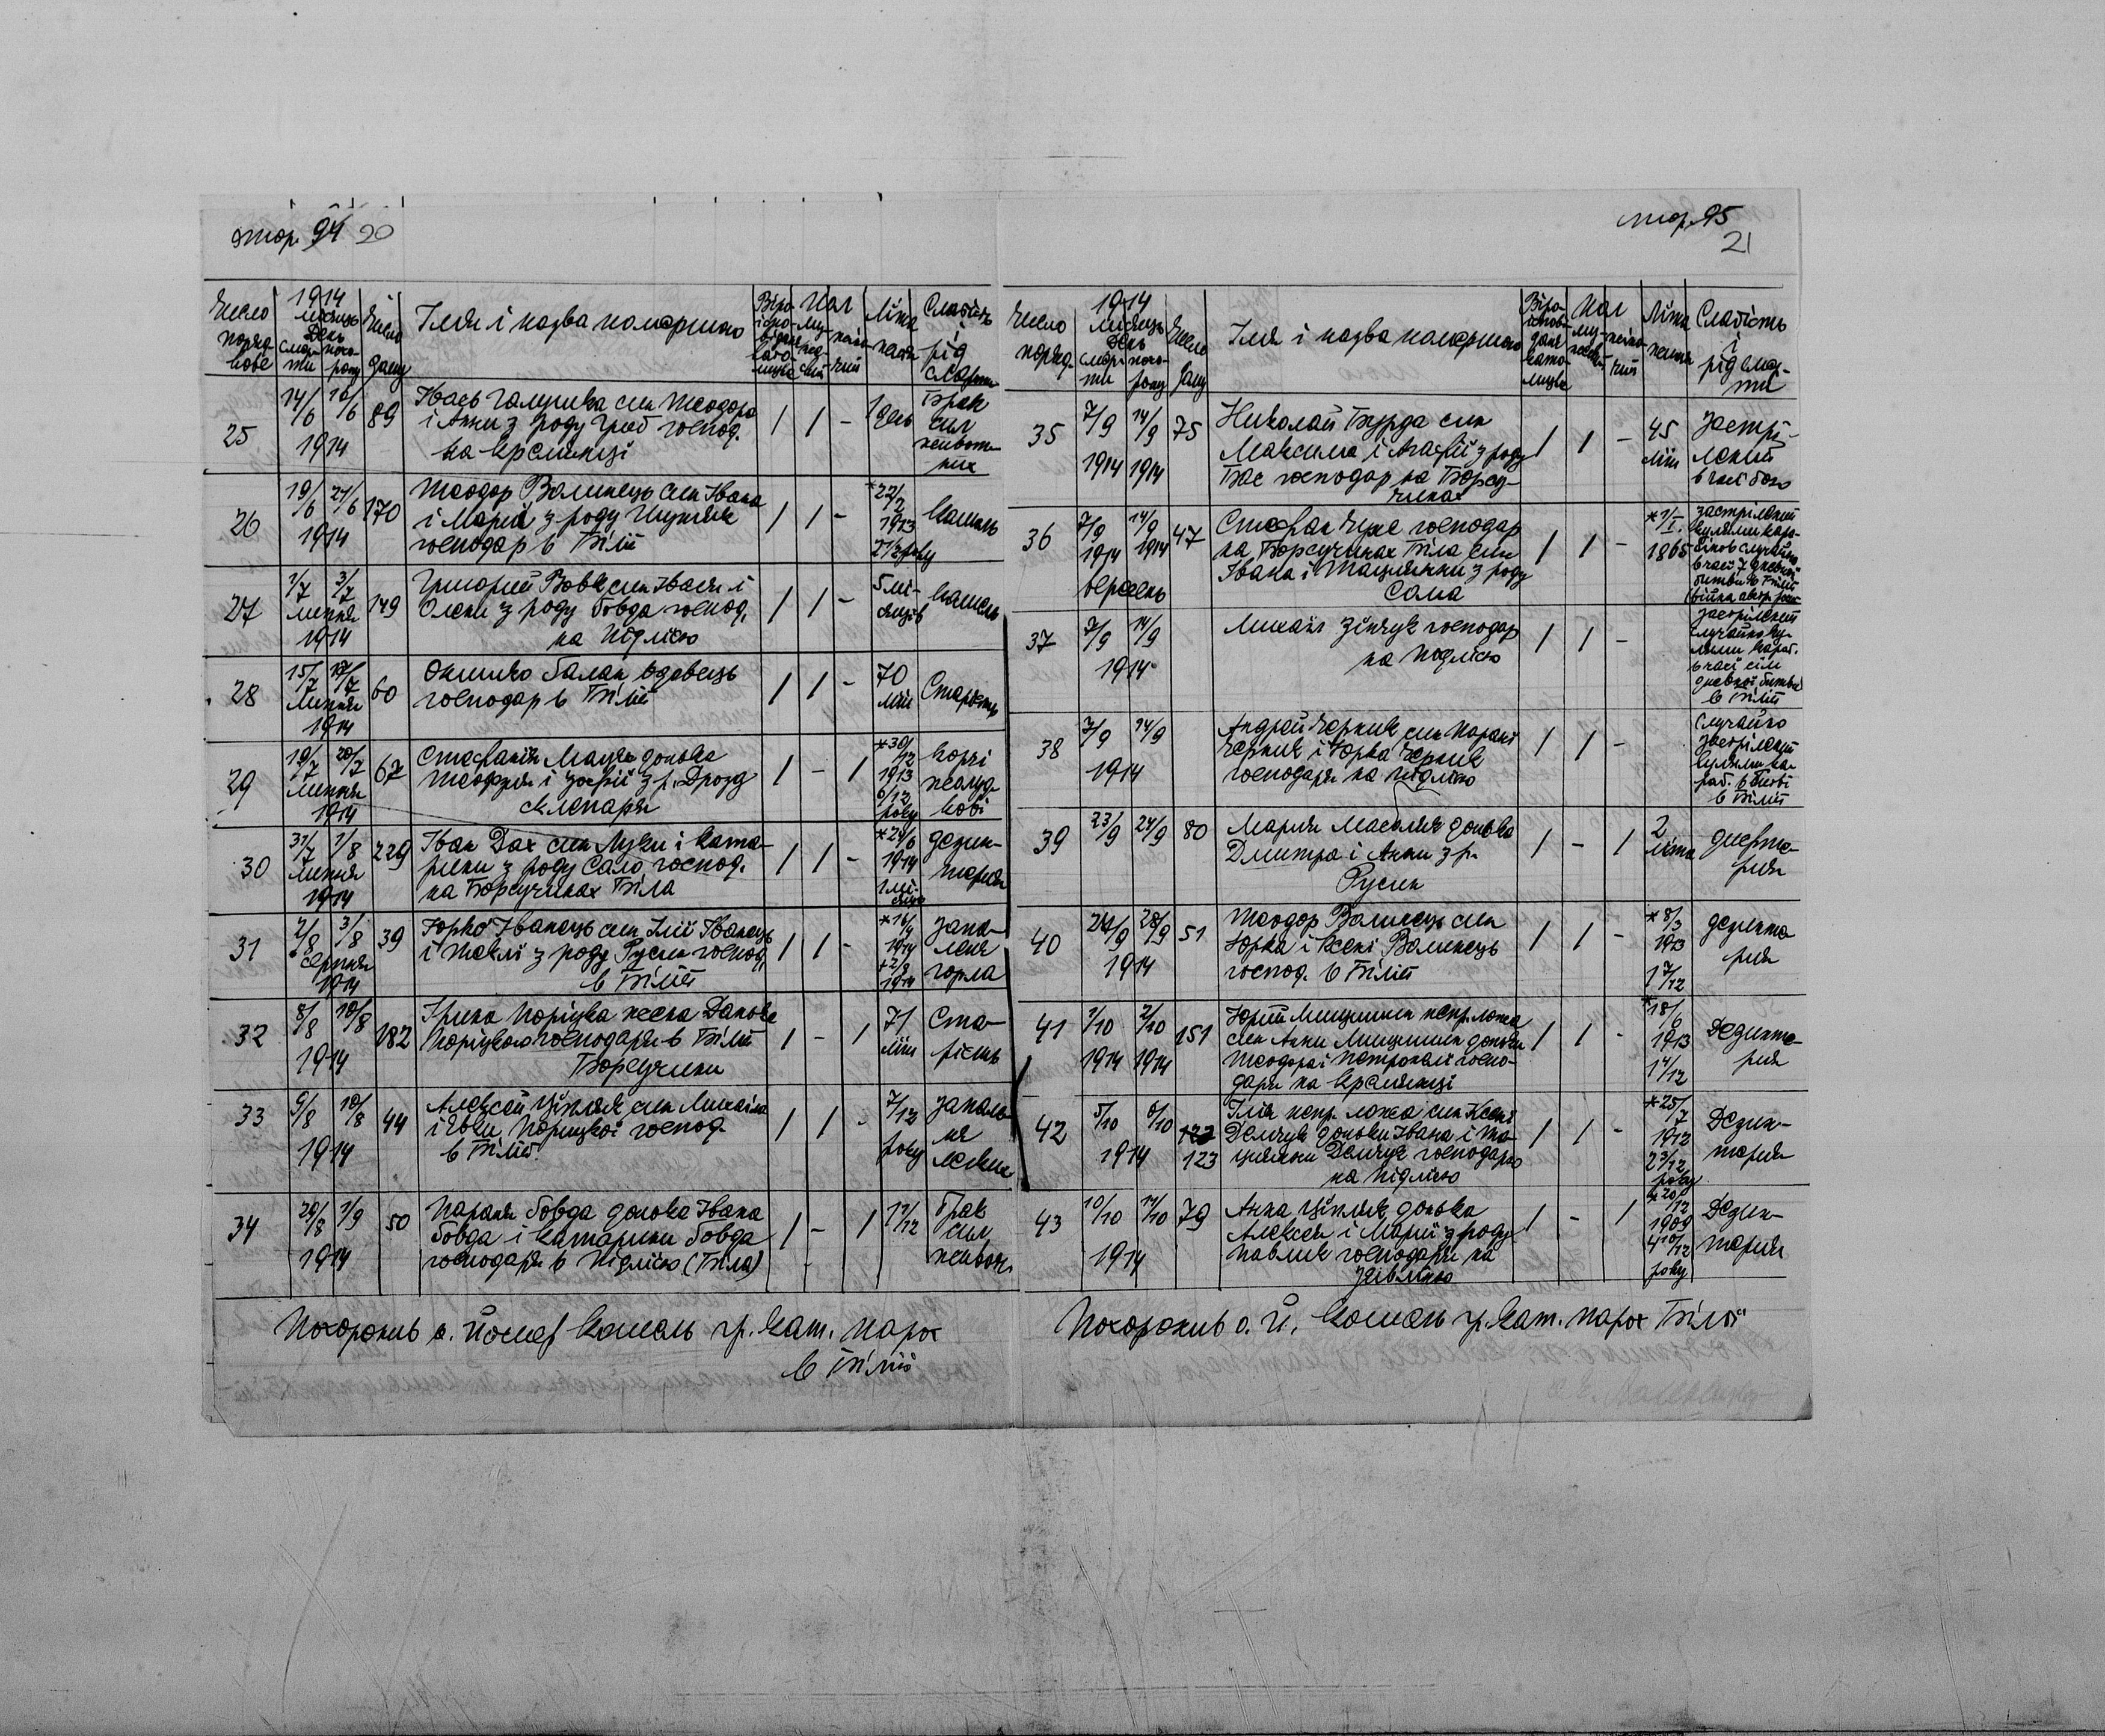 стор. 94 20
Число порядкове
1914 місяць День смерти похорону
Число дому
Імя і назва помершого
Віроісповідання католицьке
Пол мужеский женский
Літа життя
Слабість і рід смерти
25 14/6 16/6 1914 89
Івась Галушка син Теодора
і Анни з роду Гриб господ.
на Кремянці
1 1 - 1 день
Брак
сил
животних
26 19/6 21/6 1914 170
Теодор Волинець син Івана
і Марії з роду
господар в Білій
1 1 - *22/2 1913 2 1/2 року
кашель
27 1/7 3/7 липня 1914 149
Григорий Вовк син Івася і
Олени з роду Бовда господ.
на Підлісю
1 1 - 5 місяців
кашель
28 15/7 17/7 липня 1914 60
Онишко Балан вдовець
господар в Білій
1 1 - 70 літ
Старість
29 19/7 20/7 липня 1914 67
Стефанія донька
і Зофії з р. Дрозд
склепаря
1 - 1 *30/12 1913 6/12 року
корчі
жолудкові
30 31/7 1/8 липня 1914 229
Іван Дах син Луки і Катарини з роду Сало господ.
на Борсучинах Біла
1 1 - *24/6 1914 1 місяць
дезинтерия
31 2/8 3/8 серпня 1914 39
Юрко Іванець син Ілії Іванець
і Павлі з роду Русин господ.
в Білій
1 1 - *16/4 1914 +2/8 1914
запаленя
горла
32 8/8 10/8 1914 182
Ірина Поріцка жена Данька
Поріцкого господаря в Білій
Борсучини
1 - 1 71 літ
Старість
33 9/8 10/8 1914 44
Алексей Ціпляк син Михайла
і Евки Порицкої господ.
в Білій.
1 1 - 7/12 року
запаленя
легких
34 20/8 1/9 1914 50
Параня Бовда донька Івана
Бовда і Катарини Бовда
господаря в Підлісю (Біла)
1 - 1 1 1/12
Брак
сил
животн.
Похоронив о. Йосиф Кошель гр. кат. парох
в Білій
стор. 95
21
Число поряд.
1914 Місяць День смерти похорону
Число дому
Імя і назва помершого
Віроісповідання католицьке
Пол мужеский женский
Літа життя
Слабість і рід смерти
35 7/9 14/9 1914 1914 75
Николай Бурда син
Максима і Агафії з роду
Бас господар на Борсучинах
1 1 - 45 літ
Застрілений
в часі бою
36 7/9 14/9 1914 1914 вересень 47
Стефан господар
на Борсучинах Біла син
Івана і Тацянни з роду
Сама
1 1 - *1/I. 1865
застрілений
кулями карабінов случайно
в часі 7 дневної
битви в Білій
37 7/9 14/9 1914
Михайл Зінчук господар
на Підлісю
1 1 -
застрілений
случайно кулями караб.
в часі сім
дневної битви
в Білій
38 7/9 14/9 1914
Андрей Черник син Парані
Черник і Юрка Черник
господаря на Підлісю
1 1 -
Случайно
застрілений
кулями караб. в битві
в Білій
39 23/9 24/9 80
Мария Масляк донька
Дмитра і Анни з р.
Русин
1 - 1 2 літа
дифтерия
40 27/9 28/9 1914 51
Теодор Волинець син
Юрка і Ксені Волинець
господ. в Білій
1 1 - *8/3 1913 1 7/12
дезинтерия
41 1/10 2/10 1914 1914 151
Юрий Мицишин непр. ложа
син Анни Мицишин доньки
Теодора і Петронелі господаря на Кремянці
1 1 - *18/8 1913 1 1/12
Дезинтерия
42 5/10 6/10 1914 123
Ілія непр. ложа син Ксені
Демчук доньки Івана і Тацянни Демчук господарю
на Підлісю
1 1 - *25/7 1912 2 3/12 року
Дезинтерия
43 10/10 11/10 1914 79
Анна Ціпляк донька
Алексея і Марії з роду
Павлик господаря на
1 - 1 *20/12 1909 4 10/12 року
Дезинтерия
Похоронив о. Й. Кошель гр. кат. парох Білої